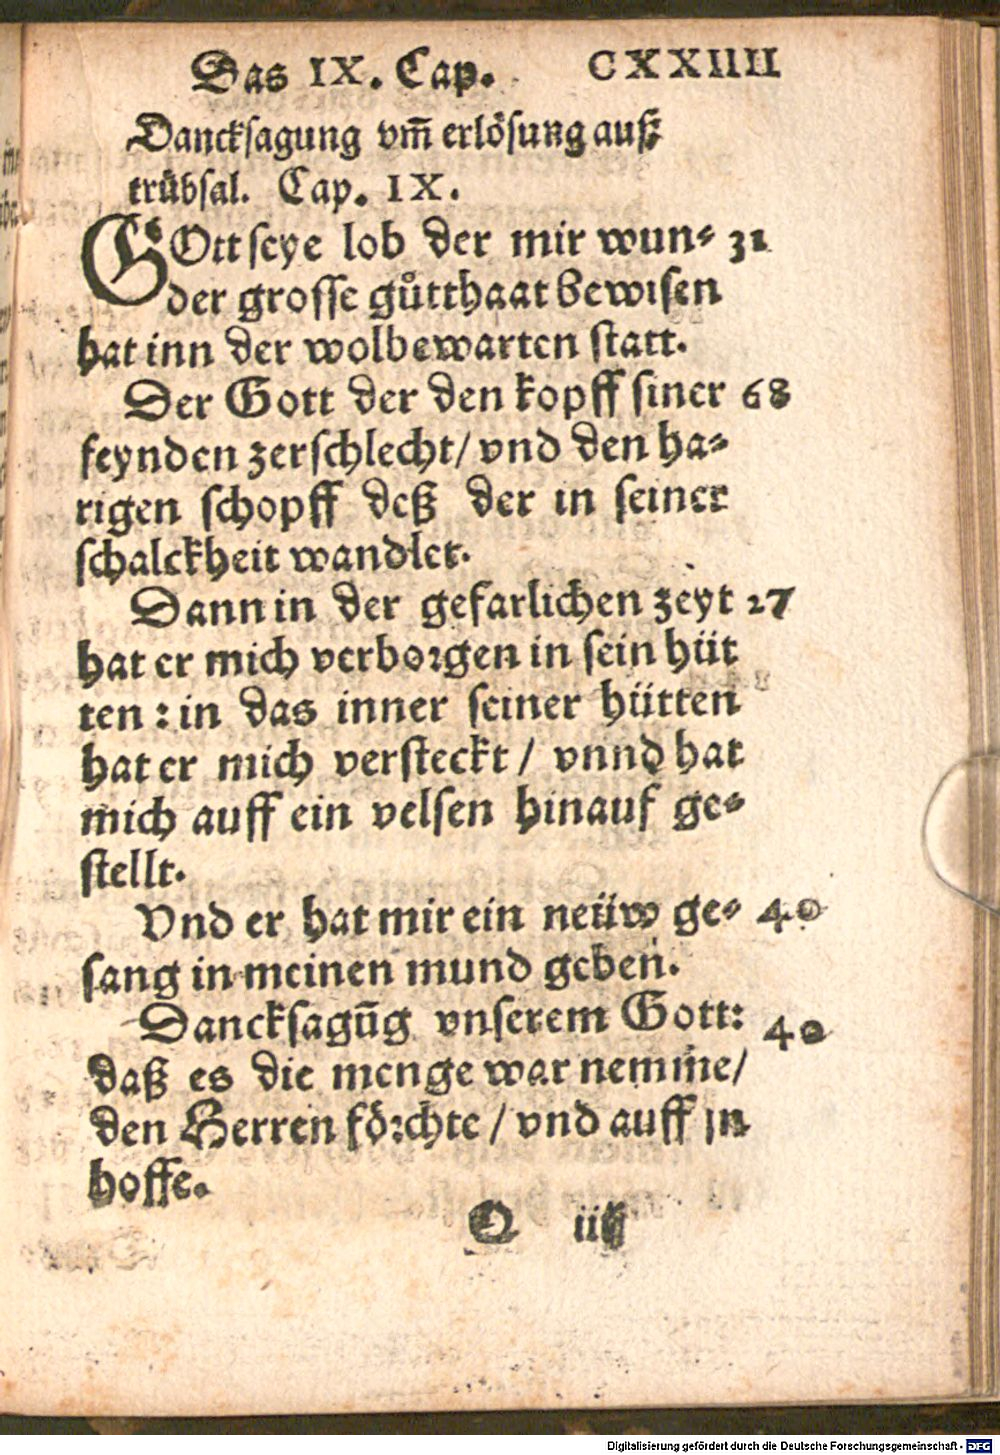 Das IX. Cap. CXXIIII
Dancksagung vm̃ erlösung auß
trübsal. Cap. IX.
GOtt seye lob der mir wun⸗ 31
der grosse gůtthaat bewisen
hat inn der wolbewarten statt.
Der Gott der den kopff siner 68
feynden zerschlecht/ vnd den ha⸗
rigen schopff deß der in seiner
schalckheit wandlet.
Dann in der gefarlichen zeyt 27
hat er mich verborgen in sein hüt
ten : in das inner seiner hütten
hat er mich versteckt / vnnd hat
mich auff ein velsen hinauf ge⸗
stellt.
Vnd er hat mir ein neüw ge⸗ 40
sang in meinen mund geben.
Dancksagũg vnserem Gott: 40
daß es die menge war nemme/
den Herren förchte / vnd auff jn
hoffe.
Q iiij
Digitalisierung gefördert durch die Deutsche Forschungsgemeinschaft - DFG